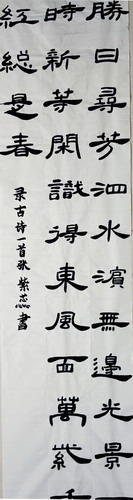 勝日尋芳泗水濱無邊光景一
時新等閑識得東風面萬紫千
紅総是春
录古诗一首张紫芯書